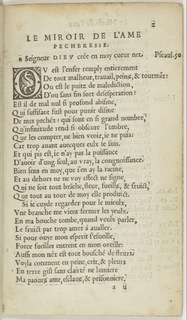 ii
LE MIROIR DE L'AME
PECHERESSE.
Seigneur DIEV crée en moy cueur net.
Pseaul. 50
OV est l'enfer remply entierement
De tout malheur, trauail, peine, & tourment?
Ou est le puitz de malediction,
D'ou sans fin sort desesperation?
Est il de mal nul si profond abisme,
Qui suffisant fust pour punir disme
De mes pechez? qui sont en si grand nombre,
Qu'infinitude rend si obscure l'ombre,
Que les compter, ne bien veoir, ie ne puis:
Car trop auant auecques eulx ie suis.
Et qui pis est, ie n'ay pas la puissance
D'auoir d'ung seul, au vray, la congnoissance.
Bien sens en moy, que i'en ay la racine,
Et au dehors ne voy effect ne signe,
Qui ne soit tout brache, fleur, fueille, & fruict,
Que tout au tour de moy elle produict.
Si ie cuyde regarder pour le mieulx,
Vne branche me vient fermer les yeulx.
En ma bouche tombe, quand veulx parler,
Le fruict par trop amer à aualler.
Si pour ouyr mon esperit s'esueille,
Force fueilles entrent en mon oreille:
Aussi mon néz est tout bousché de fleurs.
Voyla comment en peine, criz, & pleurs
En terre gist sans clarté ne lumiere
Ma paoure ame, esclaue, & prisonniere,
a ii